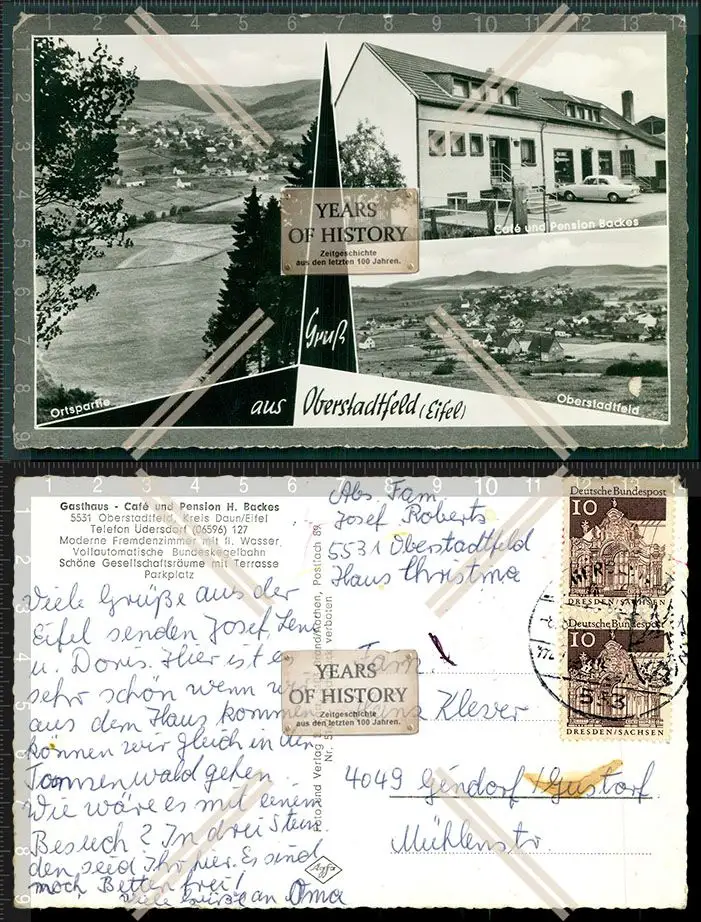 YEARS
OF HISTORY
Zeitgeschichte
aus den letzten 100 Jahren.
Café und Pension Backes
Gruß
aus
Oberstadtfeld (Eifel)
Ortspartie
Oberstadtfeld
Gasthaus - Café und Pension H. Backes
5531 Oberstadtfeld, Kreis Daun/Eifel
Telefon Üdersdorf (06596) 127
Moderne Fremdenzimmer mit fl. Wasser
Vollautomatische Bundeskegelbahn
Schöne Gesellschaftsräume mit Terrasse
Parkplatz
Viele Grüße aus der
Eifel senden Josef, Leni
u. Doris. Hier ist es
sehr schön wenn wir
aus dem Haus kommen
können wir gleich in den
Tannenwald gehen
Wie wäre es mit einem
Besuch? In drei Stun
den seid Ihr hier. Es sind
noch Betten frei!
viele Grüße an Oma
Foto und Verlag
Postfach 89
verboten
Agfa
Abs. Fam.
Josef Roberts
5531 Oberstadtfeld
Haus Christma
Fam.
Klever
4049 Gindorf / Gustorf
Mühlenstr.
Deutsche Bundespost
10
DRESDEN/SACHSEN
Deutsche Bundespost
10
DRESDEN/SACHSEN
YEARS
OF HISTORY
Zeitgeschichte
aus den letzten 100 Jahren.